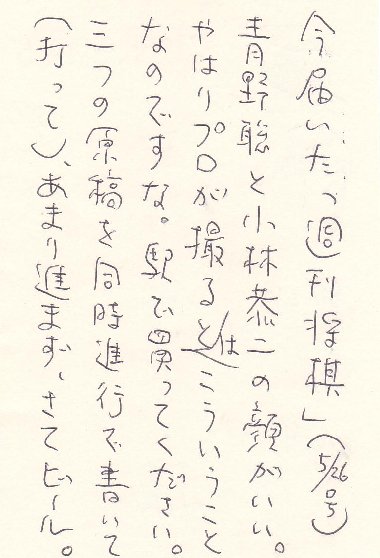 今届いた「週刊将棋」(5/26号)
青野聡と小林恭二の顔がいい。
やはりプロが撮るとはこういうこと
なのですな。駅で買ってください。
三つの原稿を同時進行で書いて
(打って)、あまり進まず、さてビール。